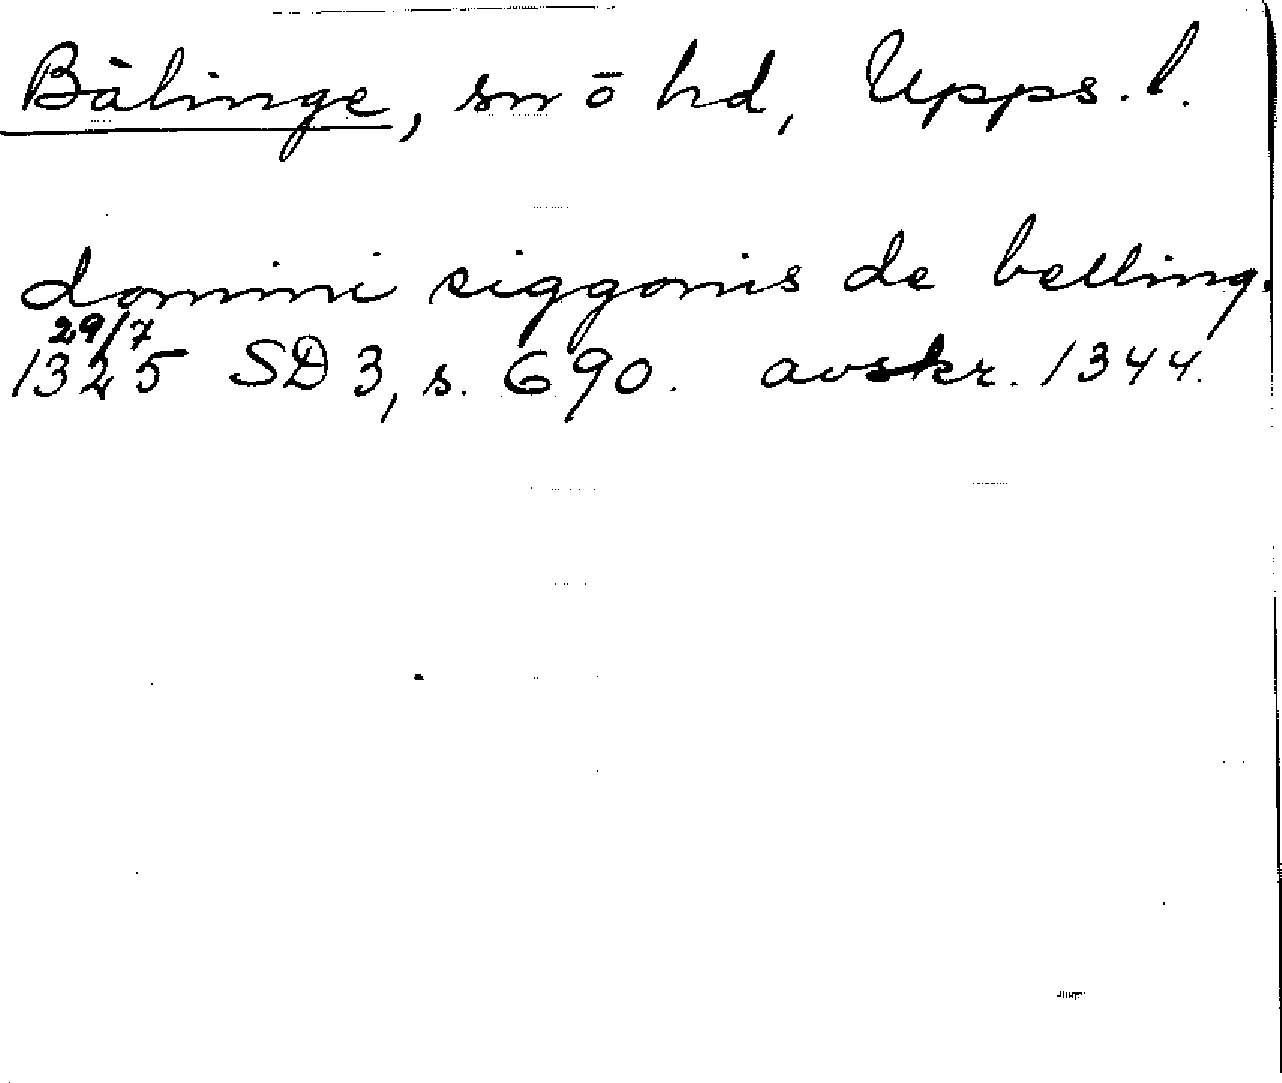 Bälinge, sn ō hd, Upps. l.
domini siggonis de belling.
29/7
1325 SD 3, s. 690. avskr. 1344.